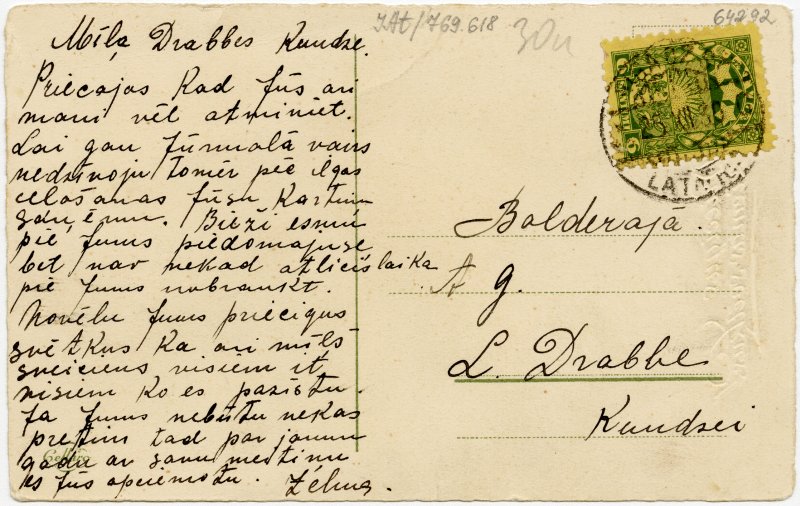 JAt/769.618
30n
64292
Mīļa Drabbes Kundze.
Priecajos Kad Jūs ari
mani vēl atminiet.
Lai gan Jūrmalā vairs
nedzīvoju tomēr pēc ilgas
celošanas Jūsu Kartiņu
saņēmu. Bieži esmu
pie Jums piedomajuse
bet nav nekad atlicis laika
pie Jums nobraukt.
Novēlu Jums priecigus
svētkus Ka ari mīļš
sveiciens visiem it
visiem Ko es pazistu.
Ja Jums nebūtu nekas
pretim tad par jaunu
gadu ar savu meitiņu
es Jūs apciemotu. Zelma.
Bolderajā.
A. g.
L. Drabbe
Kundzei
LATV